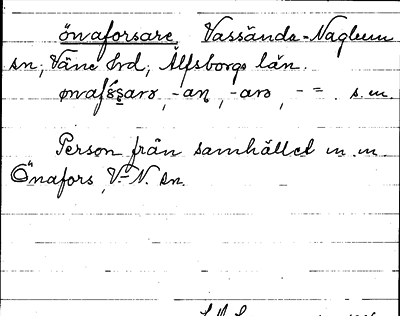 önaforsare Vassända-Naglum
sn, Väne hrd, Älfsborgs län.
-an, -arə, - = s. m.
Person från samhället m. m
Önafors, V.-N. sn.